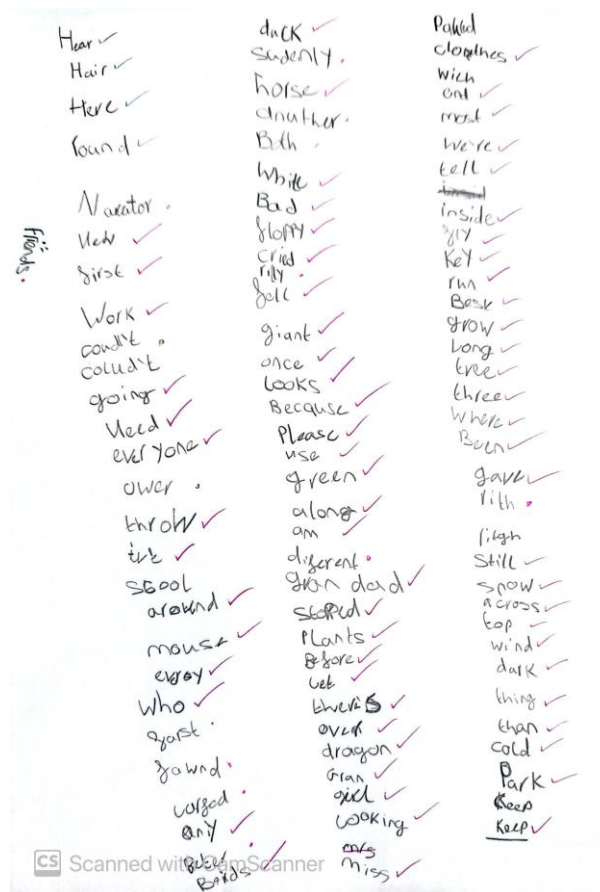 Hear
Hair
Here
round
Narator
New
first
Work
coudt
coludt
going
Need
everyone
ower
throw
scool
around
mouse
evray
Who
garst
fownd
any
Birds
friends.
duck
sudenly.
horse
anuther.
Both
White
Bad
floppy
cried
rily
fell
giant
once
Looks
Because
Please
use
green
along
am
diferent.
gran dad
stopped
Plants
Before
vet
over
dragon
Gran
girl
Looking
mrs
miss
clothes
wich
and
most
We're
tell
inside
fly
Key
run
Best
grow
Long
tree
three
Where
Been
gave
rith
Still
snow
across
top
wind
dark
thing
than
cold
Park
Keep
Keep
CS Scanned with CamScanner